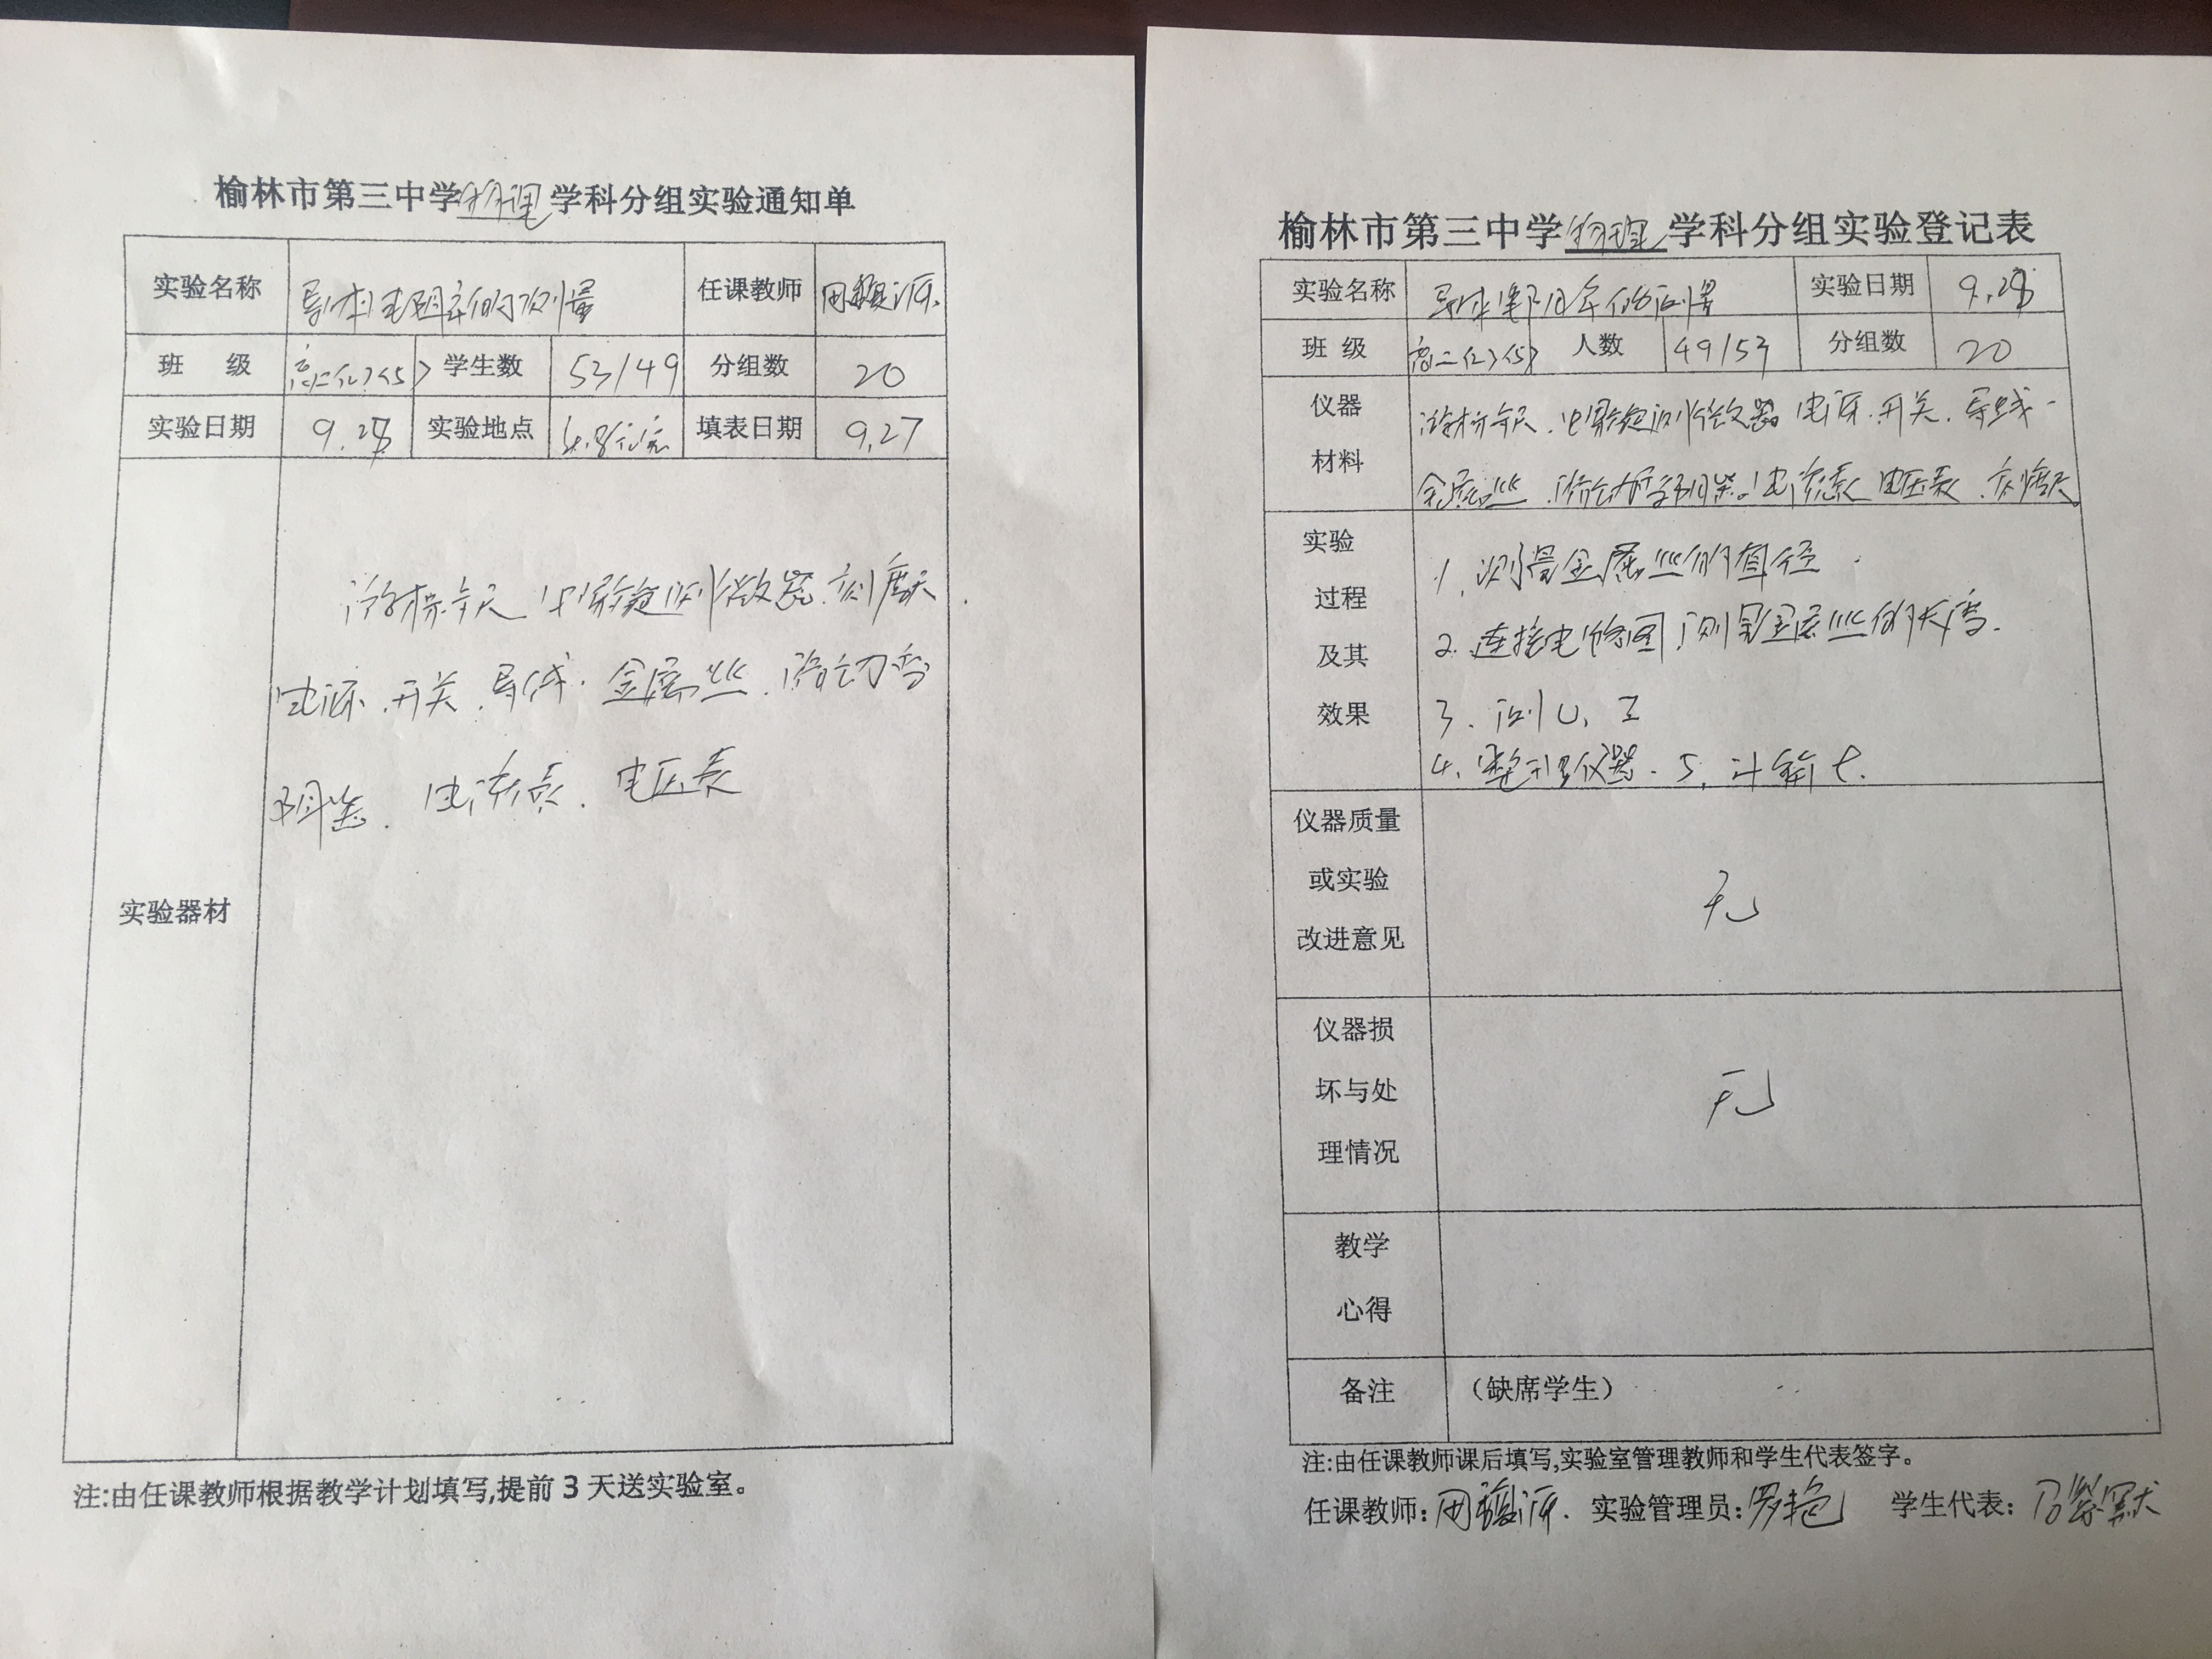 榆林市第三中学物理学科分组实验通知单
实验名称 导体电阻率的测量 任课教师
班 级 高二(2)(5) 学生数 53/49 分组数 20
实验日期 9.28 实验地点 填表日期 9.27
实验器材
游标卡尺 螺旋测微器、刻度尺、
电源、开关、导线、金属丝、滑动变
阻器、电流表、电压表
注:由任课教师根据教学计划填写,提前3天送实验室。
榆林市第三中学物理学科分组实验登记表
实验名称 导体电阻率的测量 实验日期 9.28
班 级 高二(2)(5) 人数 49/53 分组数 20
仪器 材料
游标卡尺、螺旋测微器 电源、开关、导线、
金属丝、滑动变阻器、电流表 电压表、刻度尺
实验 过程 及其 效果
1、测量金属丝的直径、
2、连接电路图 测量金属丝的长度.
3、测U、I
4、整理仪器、5、计算ρ.
仪器质量 或实验 改进意见 无
仪器损 坏与处 理情况 无
教学 心得
备注 （缺席学生）
注:由任课教师课后填写,实验室管理教师和学生代表签字。
任课教师: 实验管理员:罗艳 学生代表: